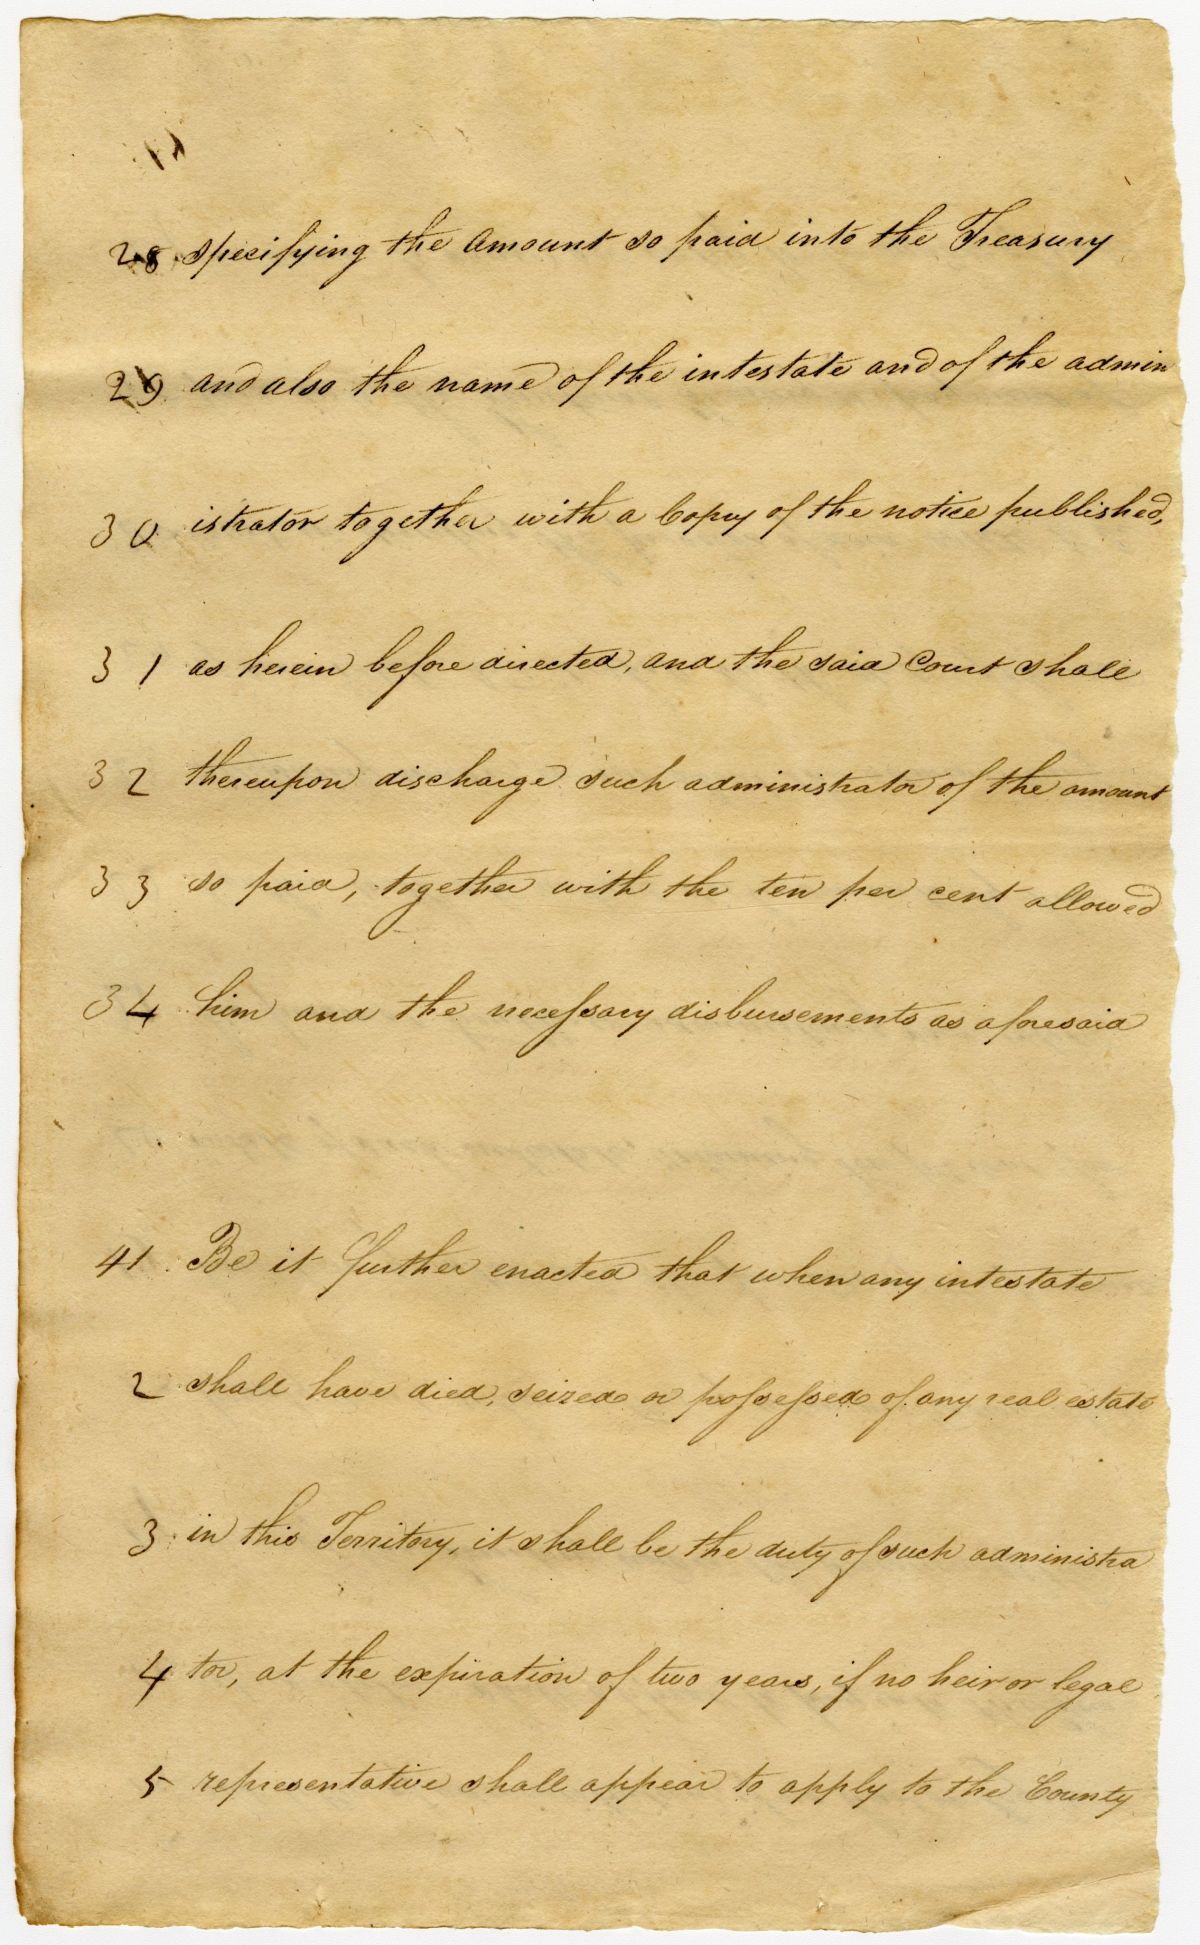 28 specifying the amount so paid into the Treasury
29 and also the name of the intestate and of the admin
30 istrator together with a Copy of the notice published,
31 as herein before directed, and the said Court shall
32 thereupon discharge such administrator of the amount
33 so paid, together with the ten per cent allowed
34 him and the necessary disbursements as aforesaid
41 Be it further enacted that when any intestate
2 shall have died, seized or possessed of any real estate
3 in this Territory, it shall be the duty of such administra
4 tor, at the expiration of two years, if no heir or legal
5 representative shall appear to apply to the County